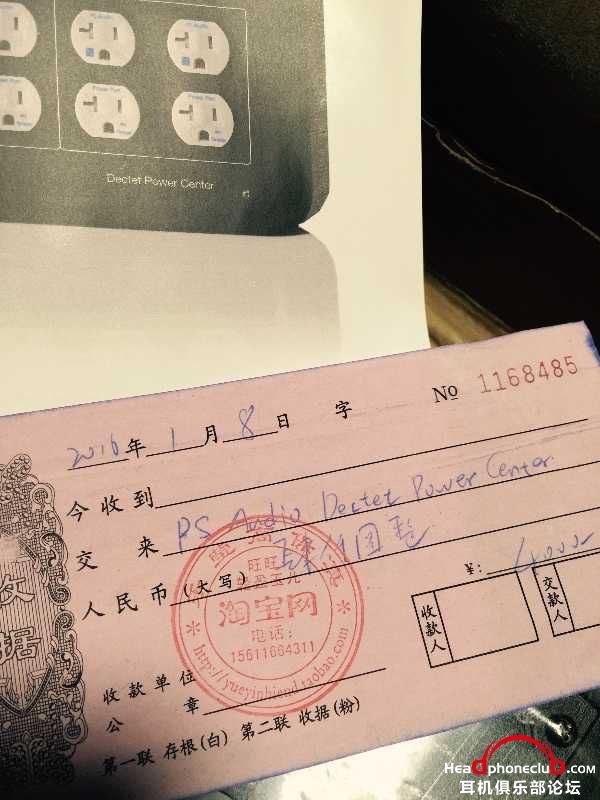 PS Audio
PS Audio
Power Port
Power Port
Dectet Power Center
No 1168485
2016年1月8日 字
今收到
交来 PS Audio Dectet Power Center
人民币(大写) 肆仟圆整 ¥: 4000
旺旺
淘宝网
电话:
15611664311
http://yueyinhiend.taobao.com
收款人
交款人
收款单位
公章
第一联 存根(白) 第二联 收据(粉)
收据
Headphoneclub.com
耳机俱乐部论坛